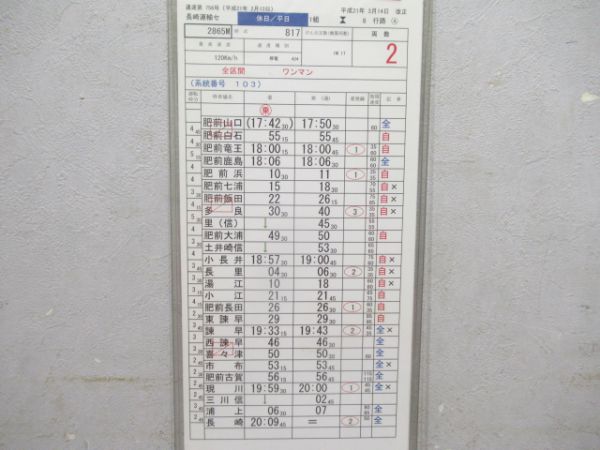 達達第 756号 (平成21年 2月13日)
平成21年 3月14日 改正
長崎運輸セ 休日/平日 1組 8 行路 ④
2865M 817 両数
120Km/h 2
全区間 ワンマン
(系統番号 103)
着 発 (通) 着発線 記事
東
肥前山口 (17:42 30) 17:50 30 全
肥前白石 55 15 55 45 自
肥前竜王 18:00 15 18:00 45 1 自
肥前鹿島 18:06 18:06 30 全
肥前浜 10 30 11 1 自
肥前七浦 15 18 30 自×
肥前飯田 22 26 15 自×
多良 30 30 40 3 自×
里(信) ↓ 45 30
肥前大浦 49 30 50 自
土井崎信 ↓ 53 30
小長井 18:57 30 19:00 45 自×
長里 04 30 06 30 2 自×
湯江 10 18 自×
小江 21 15 21 45 自
肥前長田 26 26 30 1 自
東諫早 29 29 30 自
諫早 19:33 15 19:43 2 全×
西諫早 46 46 30 全
喜々津 50 50 30 全
市布 53 15 53 45 全×
肥前古賀 56 15 56 45 全
現川 19:59 30 20:00 1 全×
三川信 ↓ 02 45
浦上 06 30 07 全
長崎 20:09 45 = 2 全